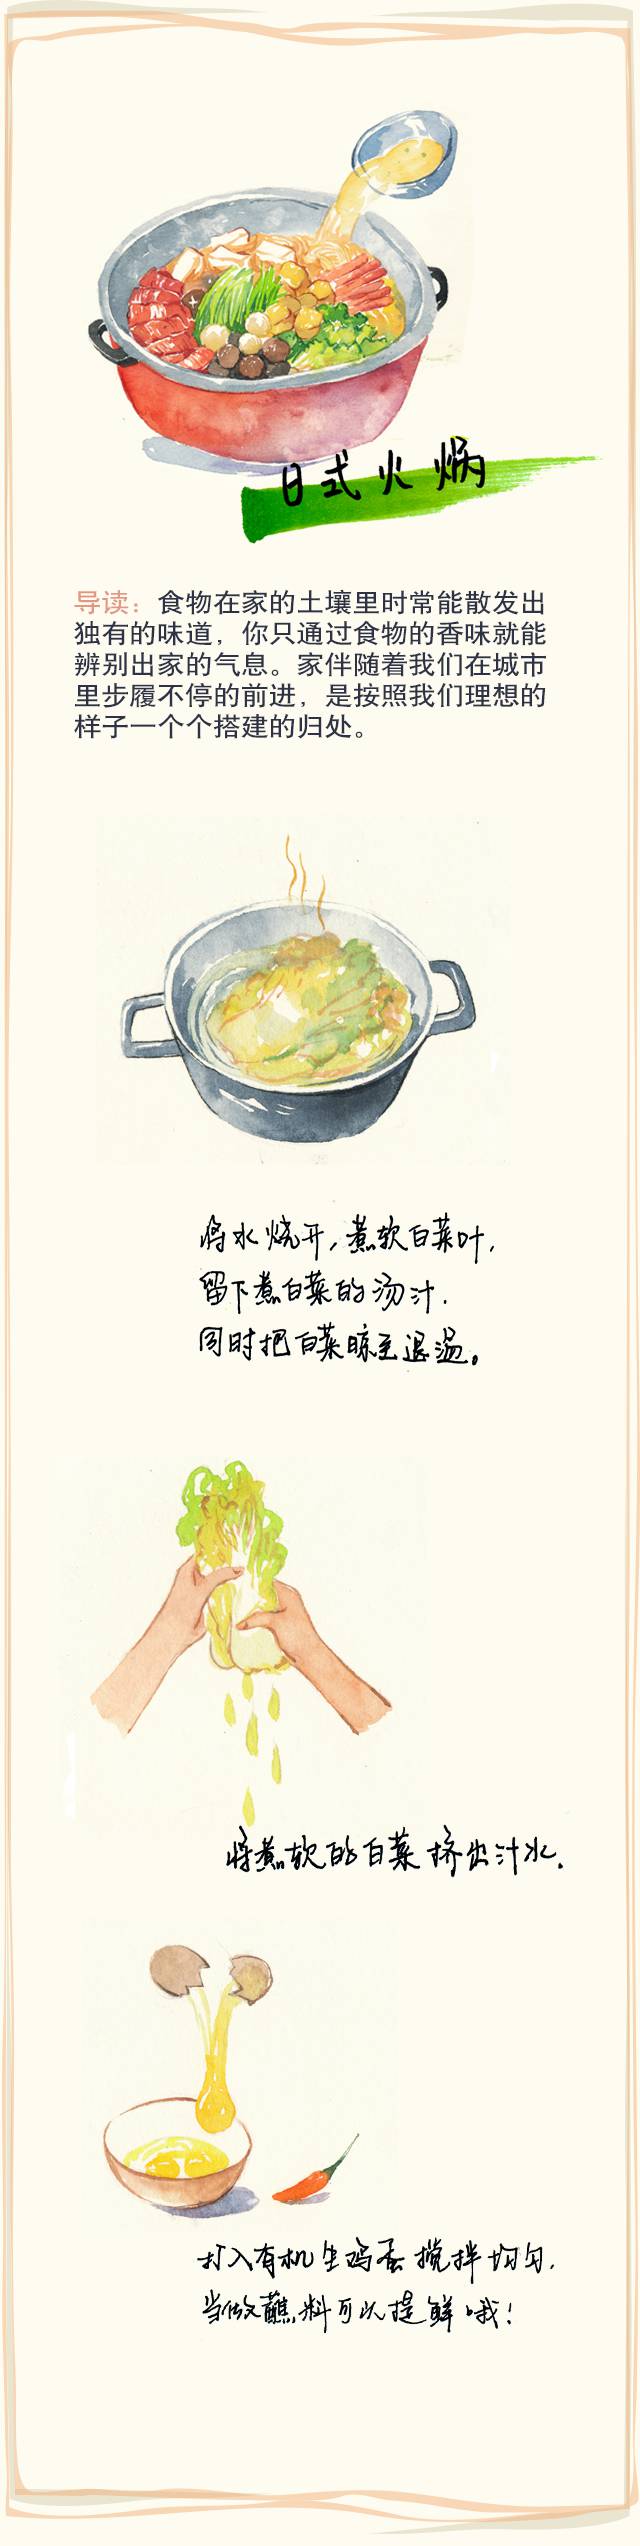 日式火焖
导读：食物在家的土壤里时常能散发出
独有的味道，你只通过食物的香味就能
辨别出家的气息。家伴随着我们在城市
里步履不停的前进，是按照我们理想的
样子一个个搭建的归处。
将水烧开，煮软白菜叶，
留下煮白菜的汤汁.
同时把白菜晾至退温。
将煮软的白菜挤出汁水.
打入有机生鸡蛋搅拌均匀.
当做蘸料可以提鲜哦！